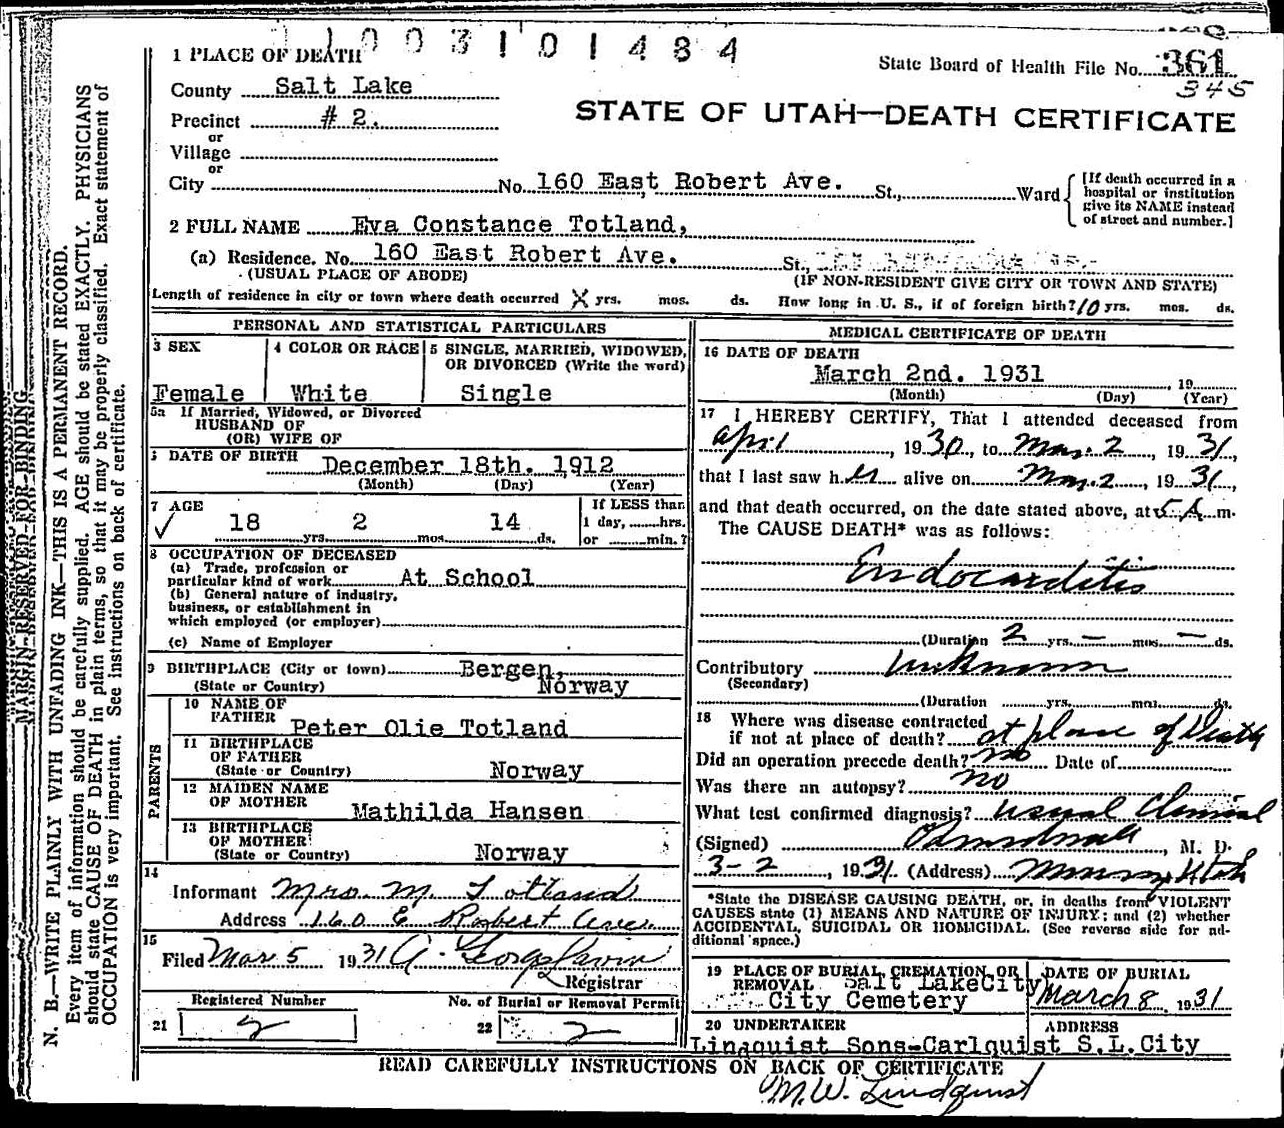 1003101484
1 PLACE OF DEATH
State Board of Health File No. 361
345
County Salt Lake
STATE OF UTAH—DEATH CERTIFICATE
Precinct # 2.
or
Village
or
City No. 160 East Robert Ave. St., Ward
[If death occurred in a
hospital or institution
give its NAME instead
of street and number.]
2 FULL NAME Eva Constance Totland,
(a) Residence. No. 160 East Robert Ave. St.,
(USUAL PLACE OF ABODE) (IF NON-RESIDENT GIVE CITY OR TOWN AND STATE)
Length of residence in city or town where death occurred X yrs. mos. ds. How long in U. S., if of foreign birth? 10 yrs. mos. ds.
PERSONAL AND STATISTICAL PARTICULARS
3 SEX
Female
4 COLOR OR RACE
White
5 SINGLE, MARRIED, WIDOWED,
OR DIVORCED (Write the word)
Single
5a If Married, Widowed, or Divorced
HUSBAND OF
(OR) WIFE OF
DATE OF BIRTH
December 18th. 1912
(Month) (Day) (Year)
7 AGE
✓ 18 yrs. 2 mos. 14 ds.
If LESS than
1 day, hrs.
or min.?
8 OCCUPATION OF DECEASED
(a) Trade, profession or
particular kind of work At School
(b) General nature of industry,
business, or establishment in
which employed (or employer)
(c) Name of Employer
9 BIRTHPLACE (City or town) Bergen,
(State or Country) Norway
PARENTS
10 NAME OF
FATHER Peter Olie Totland
11 BIRTHPLACE
OF FATHER
(State or Country) Norway
12 MAIDEN NAME
OF MOTHER Mathilda Hansen
13 BIRTHPLACE
OF MOTHER
(State or Country) Norway
14
Informant Mrs. M. Totland
Address 160 E Robert Ave.
15
Filed Mar 5 1931 A. George
Registrar
Registered Number
21 2
No. of Burial or Removal Permit
22 2
MEDICAL CERTIFICATE OF DEATH
16 DATE OF DEATH
March 2nd. 1931 , 19
(Month) (Day) (Year)
17 I HEREBY CERTIFY, That I attended deceased from
April , 1930, to Mar. 2 , 1931,
that I last saw her alive on Mar. 2 , 1931,
and that death occurred, on the date stated above, at 5 A m.
The CAUSE DEATH* was as follows:
Endocarditis
(Duration 2 yrs. — mos. — ds.
Contributory unknown
(Secondary)
(Duration yrs. mos. ds.
18 Where was disease contracted
if not at place of death? at place of Death
Did an operation precede death? no Date of
Was there an autopsy? no
What test confirmed diagnosis? usual Clinical
(Signed) , M. D.
3-2 , 1931 (Address) Murray Utah
*State the DISEASE CAUSING DEATH, or, in deaths from VIOLENT
CAUSES state (1) MEANS AND NATURE OF INJURY; and (2) whether
ACCIDENTAL, SUICIDAL OR HOMICIDAL. (See reverse side for ad-
ditional space.)
19 PLACE OF BURIAL, CREMATION, OR
REMOVAL Salt LakeCity
City Cemetery
DATE OF BURIAL
March 8 1931
20 UNDERTAKER
Lindquist Sons-Carlquist
ADDRESS
S.L.City
READ CAREFULLY INSTRUCTIONS ON BACK OF CERTIFICATE
M.W. Lindquist
MARGIN RESERVED FOR BINDING
N. B.—WRITE PLAINLY WITH UNFADING INK—THIS IS A PERMANENT RECORD.
Every item of information should be carefully supplied. AGE should be stated EXACTLY. PHYSICIANS
should state CAUSE OF DEATH in plain terms, so that it may be properly classified. Exact statement of
OCCUPATION is very important. See instructions on back of certificate.